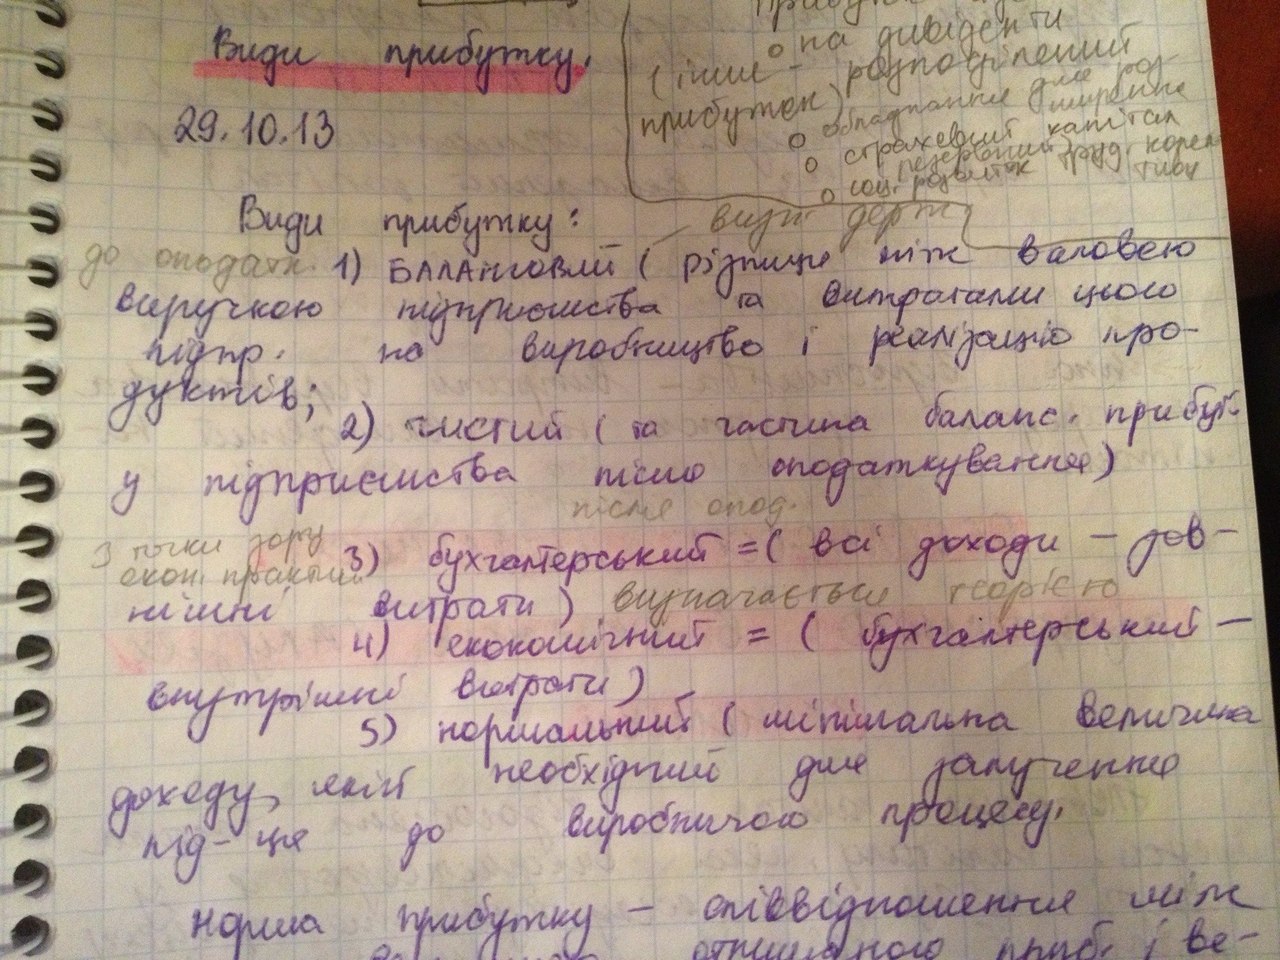 Види прибутку.
29.10.13
на дивіденти
(інше - розподілений
прибуток)
обладнання для роз-
ширення
страховий капітал
резервний
соц. розвиток труд. колек-
тиву
Види прибутку:
визн держ
до оподатк. 1) БАЛАНСОВИЙ ( різниця між валовою
виручкою підприємства та витратами цього
підпр. на виробництво і реалізацію про-
дуктів;
2) чистий ( та частина баланс. прибут-
у підприємства після оподаткування)
після опод.
З точки зору
екон. практики
3) бухгалтерський = ( всі доходи - зов-
нішні витрати) визначається теорією
4) економічний = ( бухгалтерський -
внутрішні витрати)
5) нормальний ( мінімальна величина
доходу, який необхідний для залучення
під-ця до виробничого процесу.
Норма прибутку - співвідношення між
отриманого приб. і ве-